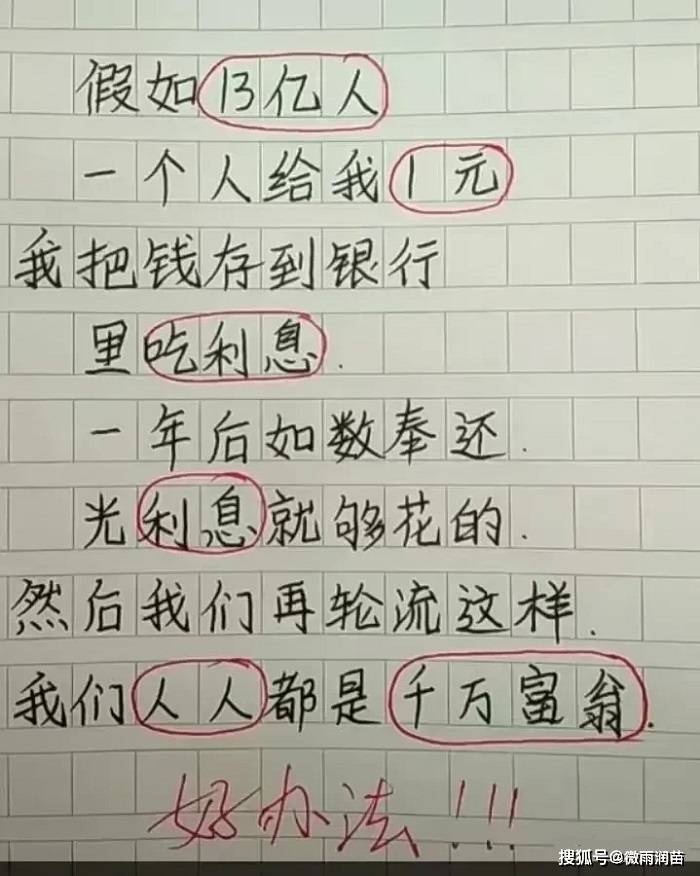 假如13亿人
一个人给我1元
我把钱存到银行
里吃利息.
一年后如数奉还.
光利息就够花的.
然后我们再轮流这样.
我们人人都是千万富翁.
好办法!!!
搜狐号@微雨润苗